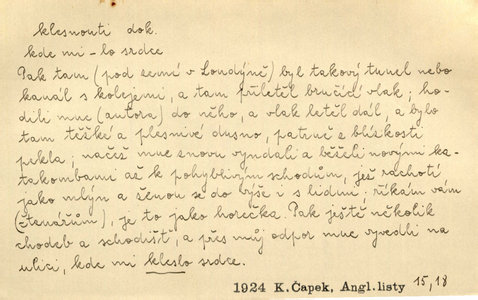 klesnouti dok.
kde mi -lo srdce
Pak tam (pod zemí v Londýně) byl takový tunel nebo
kanál s kolejemi, a tam přiletěl bručící vlak; ho-
dili mne (autora) do něho, a vlak letěl dál, a bylo
tam těžké a plesnivé dusno, patrně z blízkosti
pekla; načež mne znovu vyndali a běželi novými ka-
takombami až k pohyblivým schodům, jež rachotí
jako mlýn a ženou se do výše i s lidmi: říkám vám
(čtenářům), je to jako horečka. Pak ještě několik
chodeb a schodišť, a přes můj odpor mne vyvedli na
ulici, kde mi kleslo srdce.
1924 K. Čapek, Angl. listy 15,18